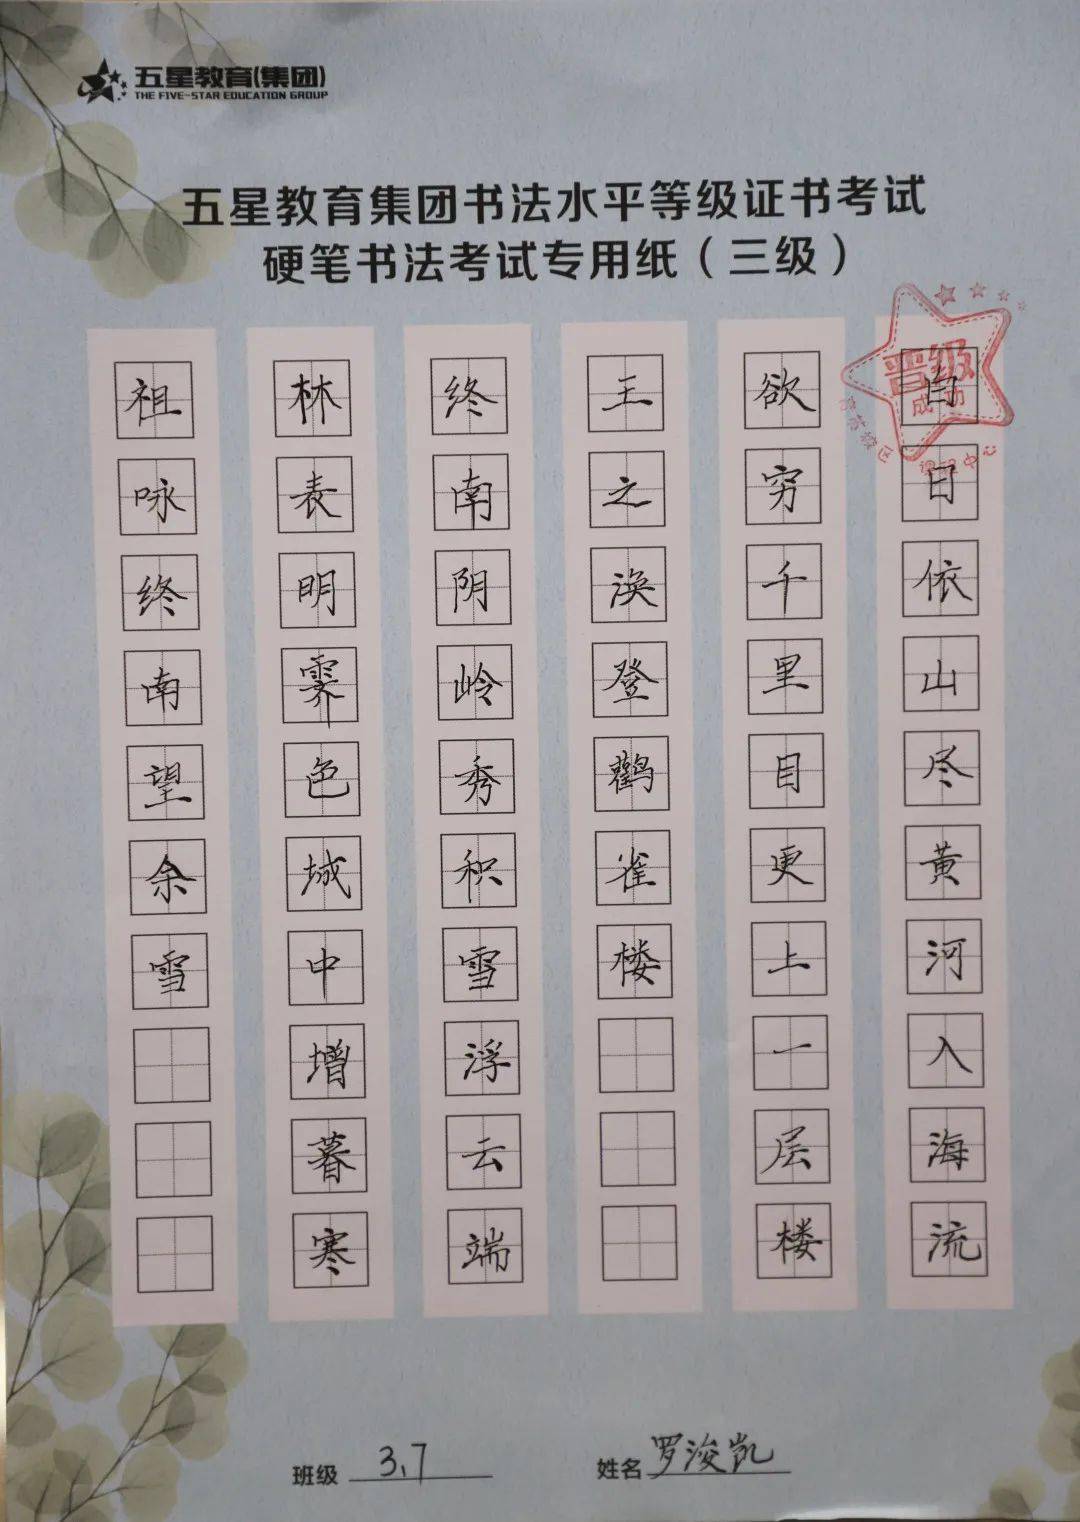 五星教育(集团)
THE FIVE-STAR EDUCATION GROUP
五星教育集团书法水平等级证书考试
硬笔书法考试专用纸（三级）
晋级
成功
课程中心
白日依山尽黄河入海流
欲穷千里目更上一层楼
王之涣登鹳雀楼
终南阴岭秀积雪浮云端
林表明霁色城中增暮寒
祖咏终南望余雪
班级 3.7
姓名 罗浚凯